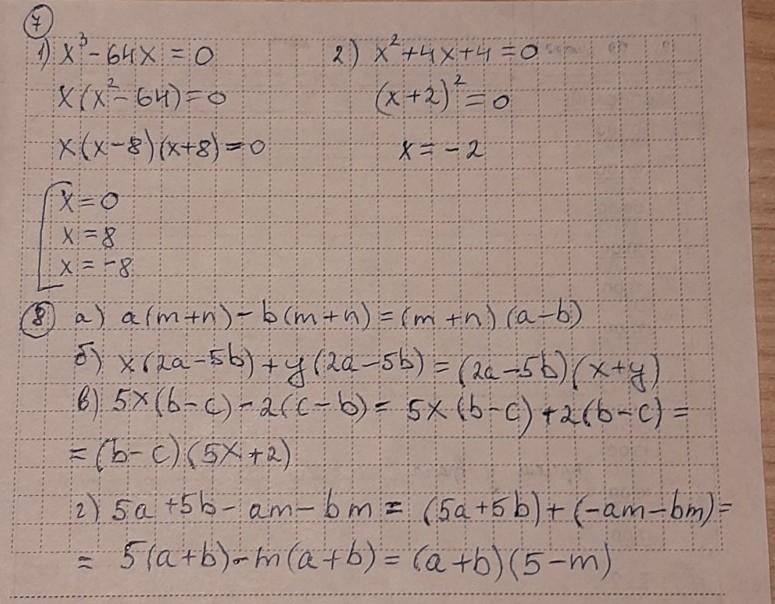 7
1) x³ - 64x = 0
x(x² - 64) = 0
x(x-8)(x+8) = 0
x = 0
x = 8
x = -8
2) x² + 4x + 4 = 0
(x+2)² = 0
x = -2
8 а) a(m+n) - b(m+n) = (m+n)(a-b)
б) x(2a-5b) + y(2a-5b) = (2a-5b)(x+y)
в) 5x(b-c) - 2(c-b) = 5x(b-c) + 2(b-c) =
= (b-c)(5x+2)
г) 5a + 5b - am - bm = (5a+5b) + (-am-bm) =
= 5(a+b) - m(a+b) = (a+b)(5-m)